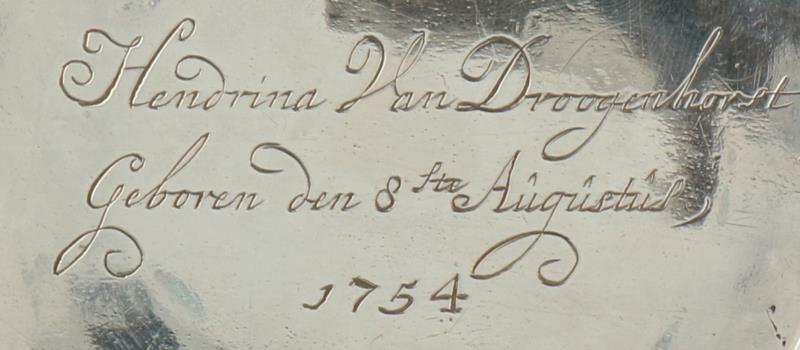 Hendrina Van Droogenhorst
Geboren den 8ste Aûgûstûs,
1754